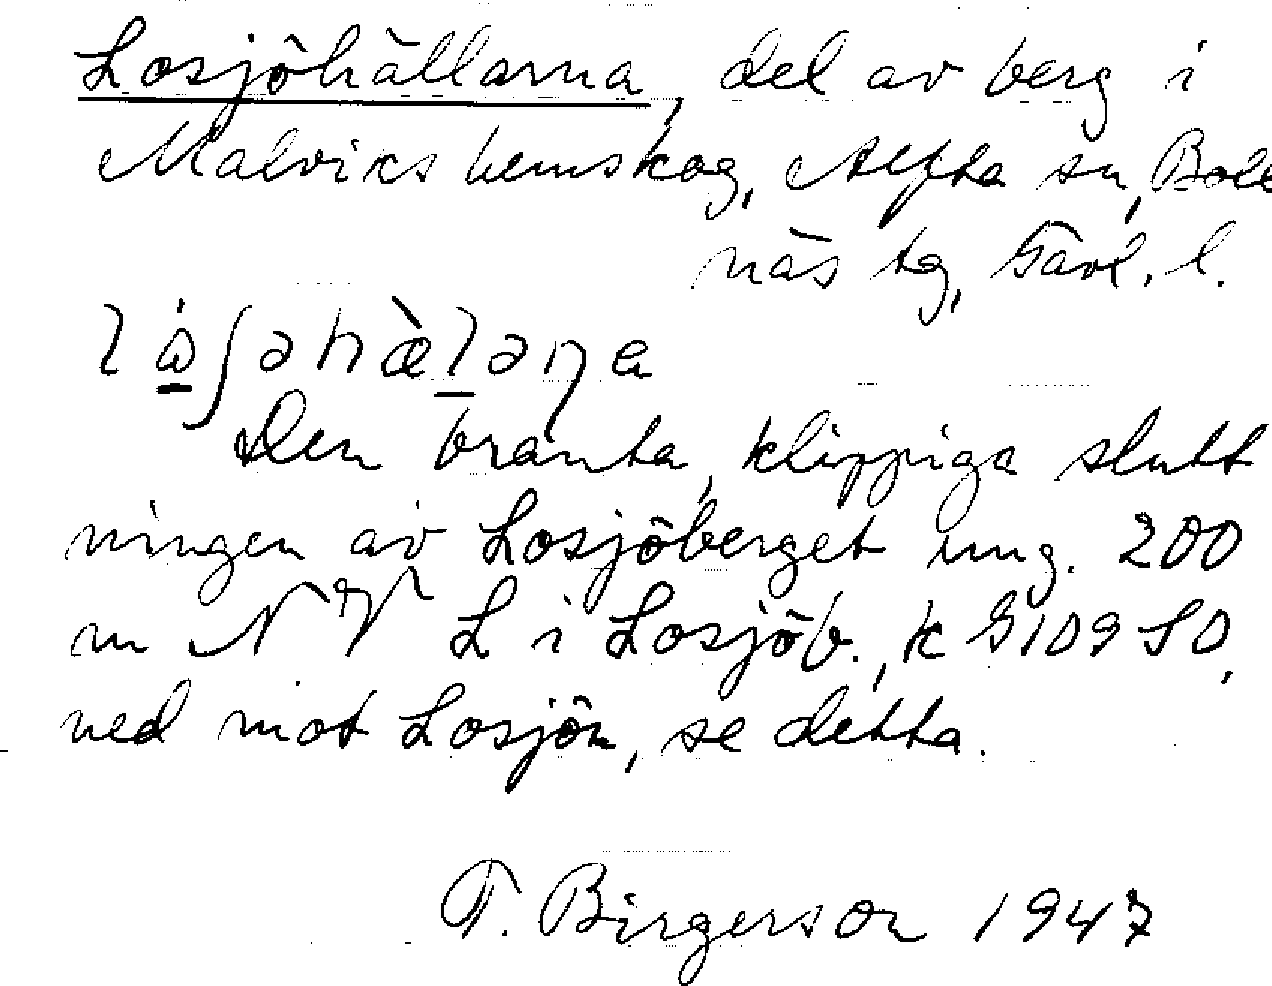 Losjöhällarna, del av berg i
Malviks hemskog, Alfta sn, Boll
näs tg, Gävl. l.
Den branta, klippiga slutt
ningen av Losjöberget ung. 200
m N L i Losjöb., k G109 SO,
ned mot Losjön, se detta.
F. Birgerson 1947